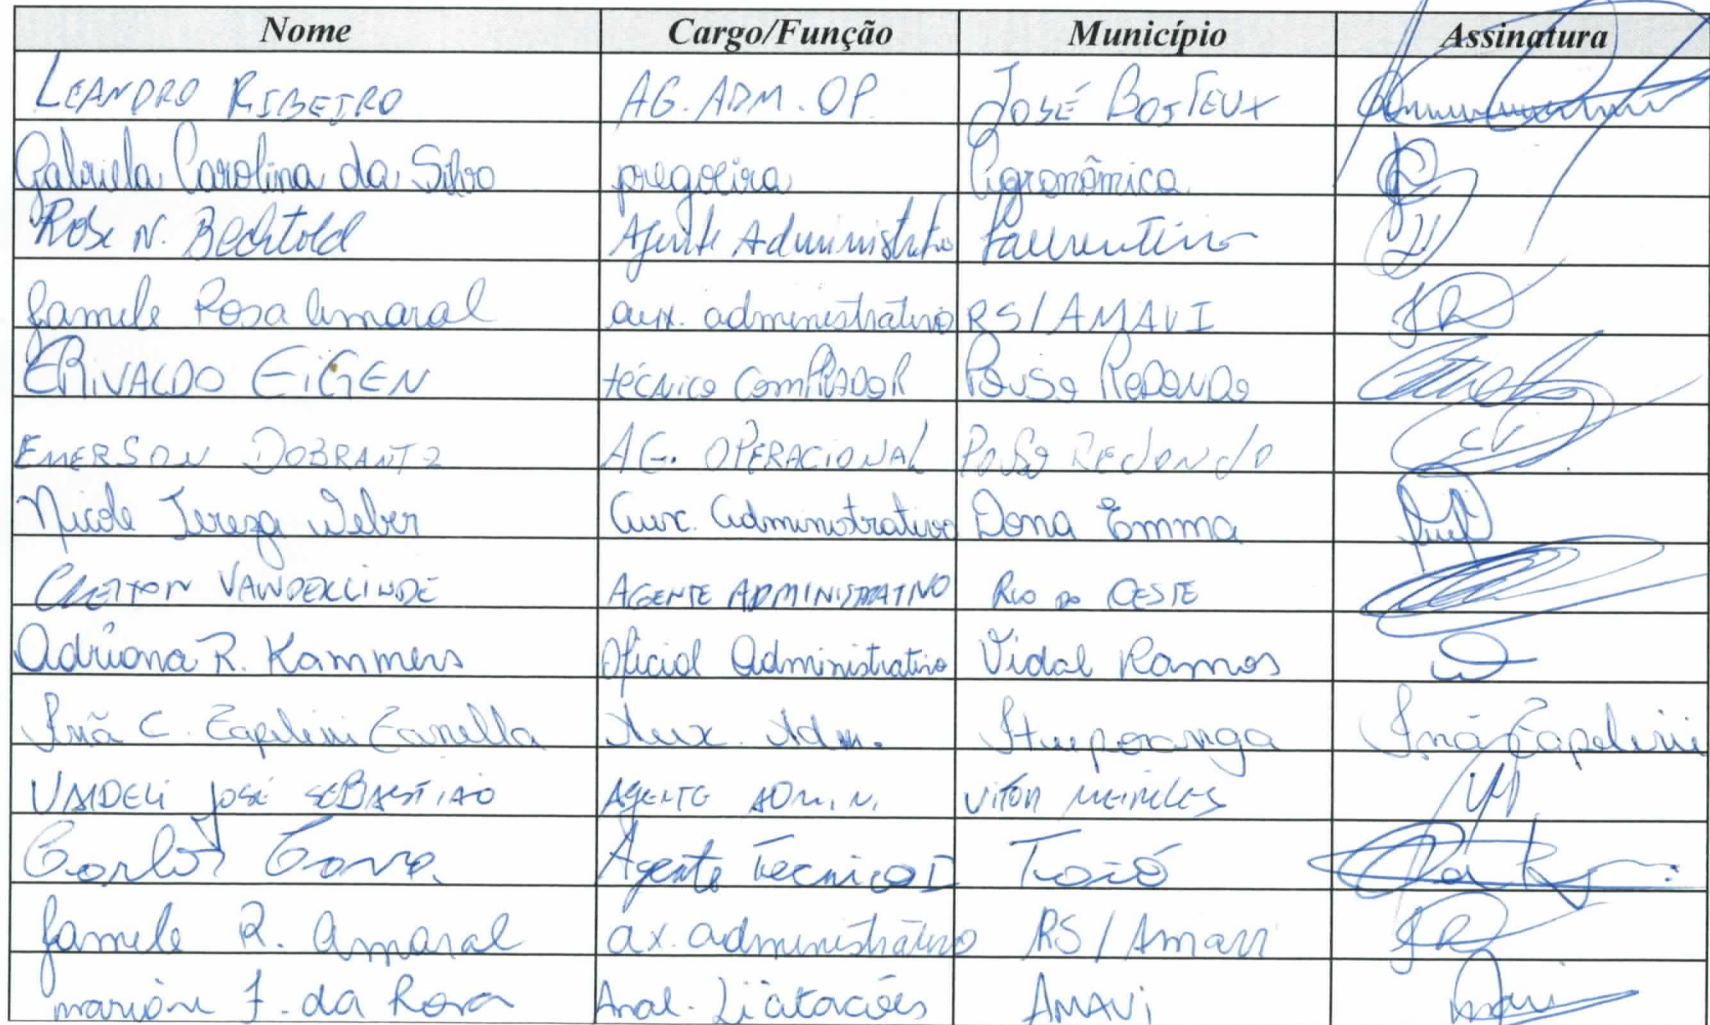 Nome Cargo/Função Município Assinatura
LEANDRO RIBEIRO AG. ADM. OP. JOSÉ BOITEUX
Gabriela Carolina da Silva pregoeira Agronômica
Rose N. Bechtold Agente Administrativo Laurentino
Jamile Rosa Amaral aux. administrativo RS/AMAVI
ERIVALDO EIGEN técnico COMPRADOR POUSO REDONDO
EMERSON DOBRANTZ AG. OPERACIONAL POUSO REDONDO
Nicole Tereza Weber Aux. Administrativo Dona Emma
CLEITON VANDERLINDE AGENTE ADMINISTRATIVO RIO DO OESTE
Adriana R. Kammers Oficial Administrativo Vidal Ramos
Inã C. Zapelini Zanella Aux. Adm. Ituporanga Inã Zapelini
VALDELI JOSÉ SEBASTIÃO AGENTE ADMIN. VITOR MEIRELES
Carlos Agente Técnico I Taió
Jamile R. Amaral ax. administrativo RS/Amavi
J. da Rosa Anal. Licitações AMAVI